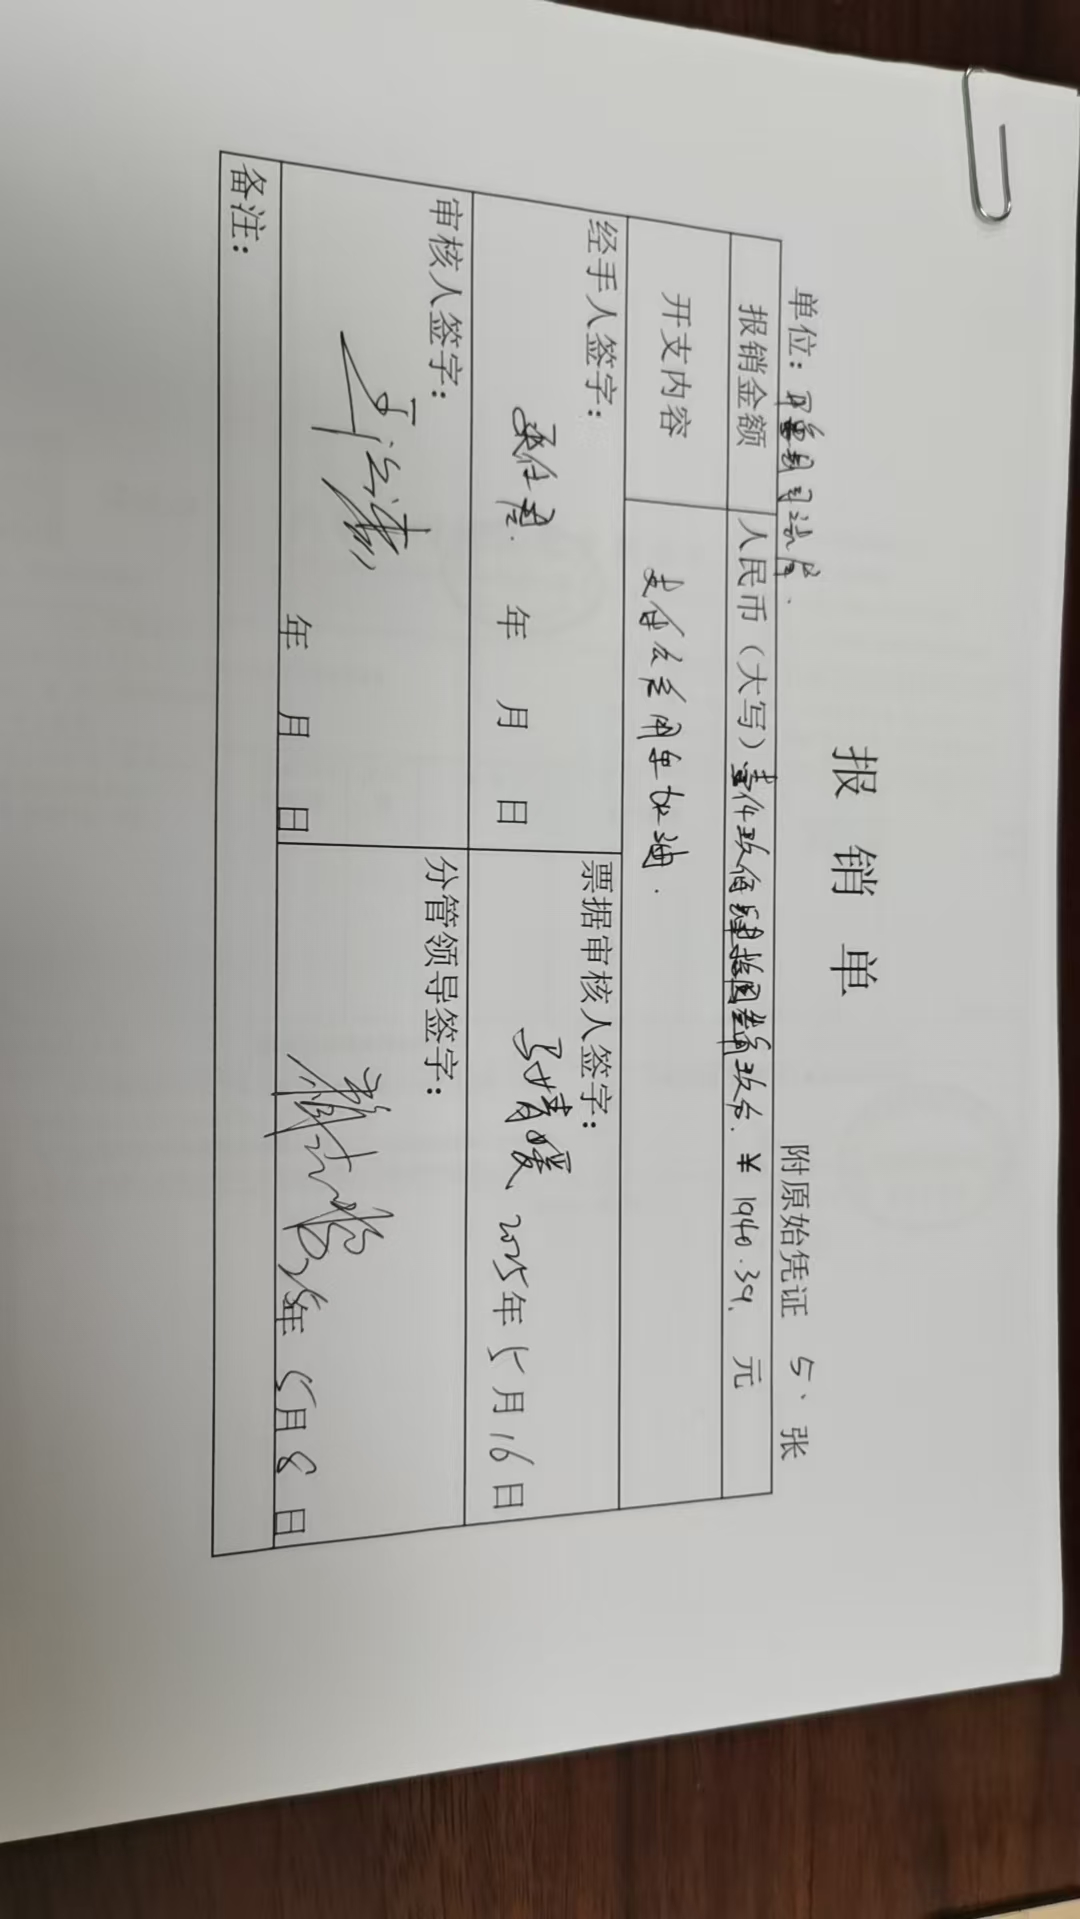 报 销 单
单位： 司法局 附原始凭证 5 张
报销金额 人民币（大写）壹仟玖佰肆拾圆叁角玖分. ¥ 1940.39. 元
开支内容 支付公务用车加油.
经手人签字： 年 月 日 票据审核人签字： 马婧媛 2025年5月16日
审核人签字： 年 月 日 分管领导签字： 年 5月8日
备注：